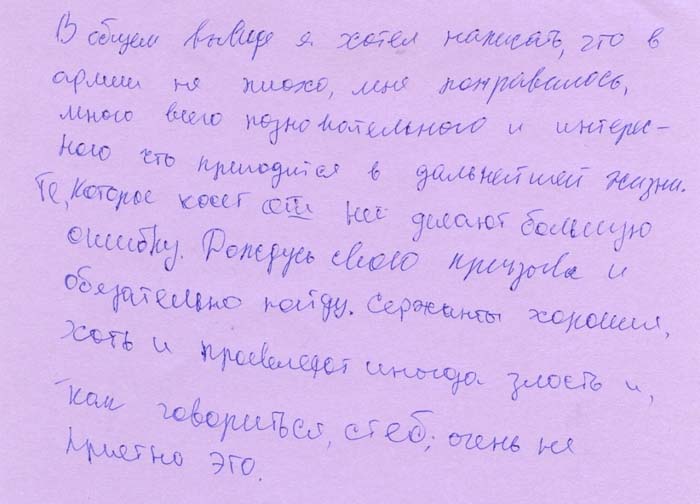 В общем выводе я хотел написать, что в
армии не плохо, мне понравилось,
много всего познавательного и интерес-
ного что пригодится в дальнейшей жизни.
Те, которые косят от неё делают большую
ошибку. Дождусь своего призыва и
обязательно пойду. Сержанты хорошии,
хоть и проевледят иногда злость и,
как говориться, стёб; очень не
приетно это.